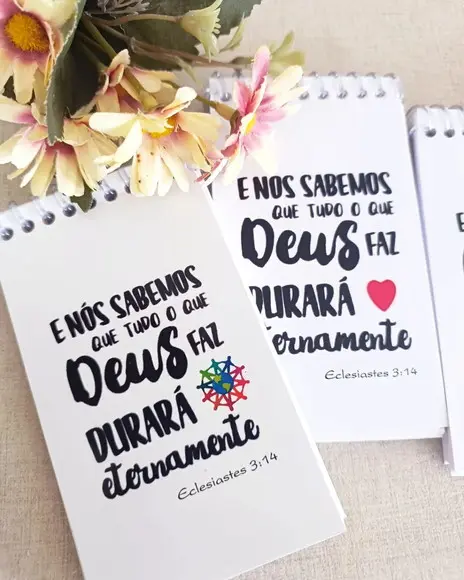 E NÓS SABEMOS
QUE TUDO O QUE
Deus FAZ
DURARÁ
eternamente
Eclesiastes 3:14
E NOS SABEMOS
QUE TUDO O QUE
Deus FAZ
DURARÁ
eternamente
Eclesiastes 3:14